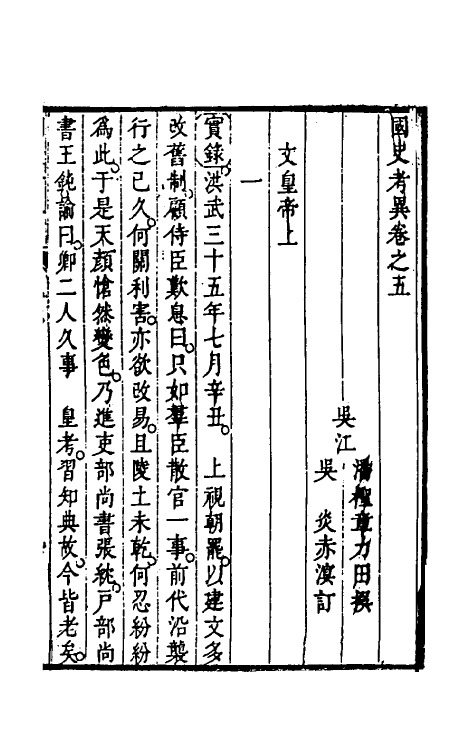 國史考異卷之五
吳江
潘檉章力田撰
吳 炎赤溟訂
文皇帝上
一
實錄洪武三十五年七月辛丑。 上視朝罷。以建文多
改舊制。顧侍臣歎息曰。只如羣臣散官一事。前代沿襲
行之已久。何關利害。亦欲改易。且陵土未乾。何忍紛紛
爲此。于是天顏愴然變色。乃進吏部尚書張紞。戶部尚
書王鈍諭曰。卿二人久事 皇考。習知典故。今皆老矣。